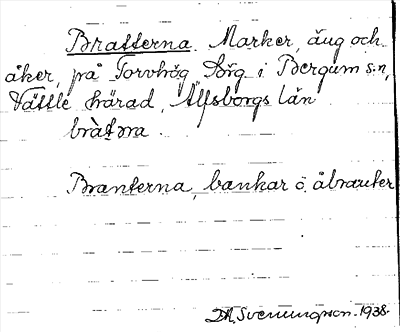 Bratterna. Marker, äng och
åker, på Torvhög Sörg i Bergum s:n,
Vättle härad, Älfsborgs län
bràt̠əra
Branterna, bankar o. åbranter
D.A. Svenningson. 1938.